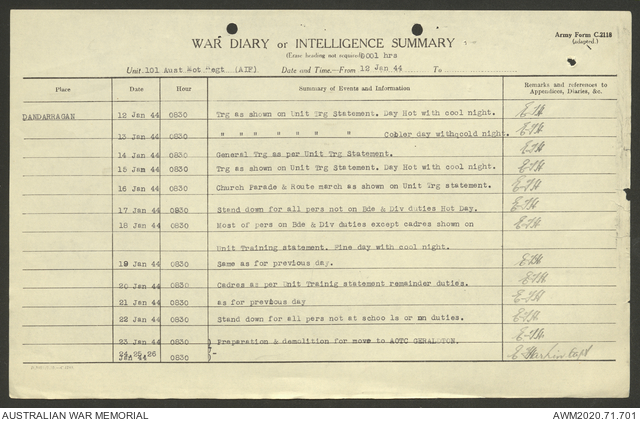 Army Form C.2118
(adapted.)
WAR DIARY or INTELLIGENCE SUMMARY
(Erase heading not required) 0001 hrs
Unit. 101 Aust Mot Regt (AIF) Date and Time.—From 12 Jan 44 To
Place Date Hour Summary of Events and Information Remarks and references to Appendices, Diaries, &c.
DANDARRAGAN 12 Jan 44 0830 Trg as shown on Unit Trg Statement. Day Hot with cool night.
13 Jan 44 0830 " " " " " " Cobler day withqcold night.
14 Jan 44 0830 General Trg as per Unit Trg Statement.
15 Jan 44 0830 Trg as shown on Unit Trg Statement. Day Hot with cool night.
16 Jan 44 0830 Church Parade & Route march as shown on Unit Trg statement.
17 Jan 44 0830 Stand down for all pers not on Bde & Div duties Hot Day.
18 Jan 44 0830 Most of pers on Bde & Div duties except cadres shown on
Unit Training statement. Fine day with cool night.
19 Jan 44 0830 Same as for previous day.
20 Jan 44 0830 Cadres as per Unit Trainig statement remainder duties.
21 Jan 44 0830 as for previous day
22 Jan 44 0830 Stand down for all pers not at schools or on duties.
23 Jan 44 0830 Preparation & demolition for move to AOTC GERALDTON.
24,25,26
Jan 44 0830 -
Capt
AUSTRALIAN WAR MEMORIAL AWM2020.71.701